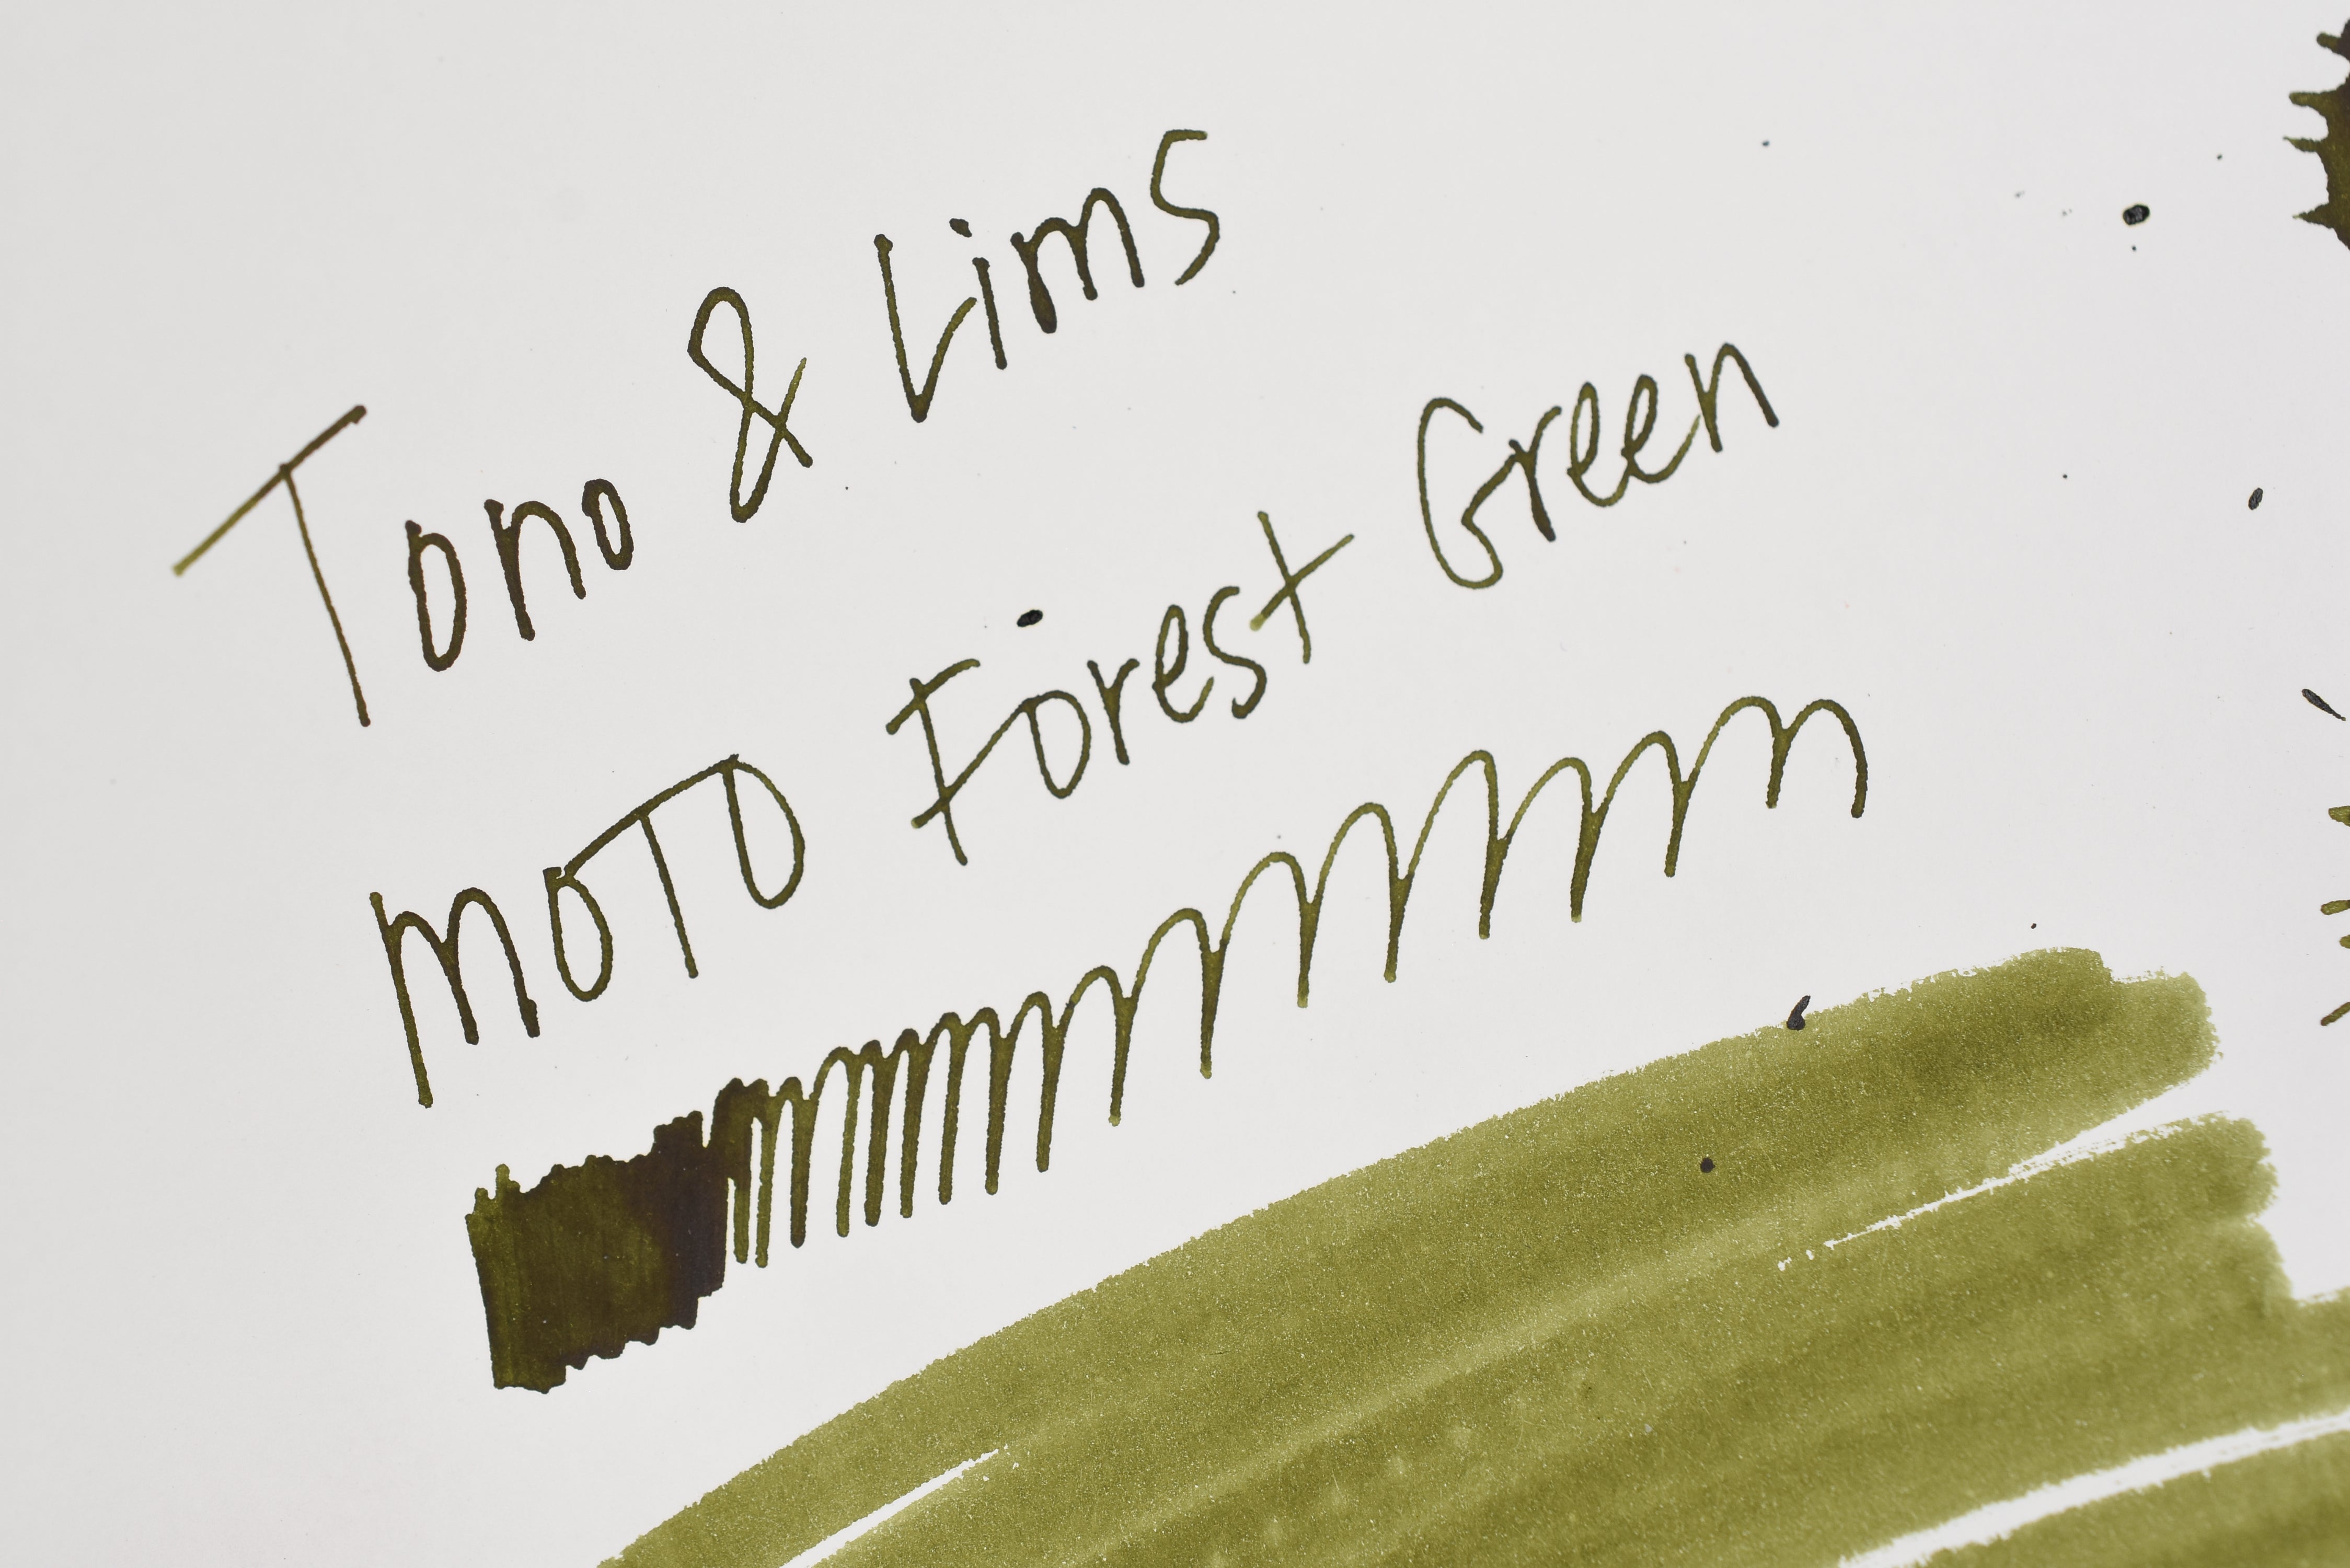 Tono & Lims
MOTO Forest Green